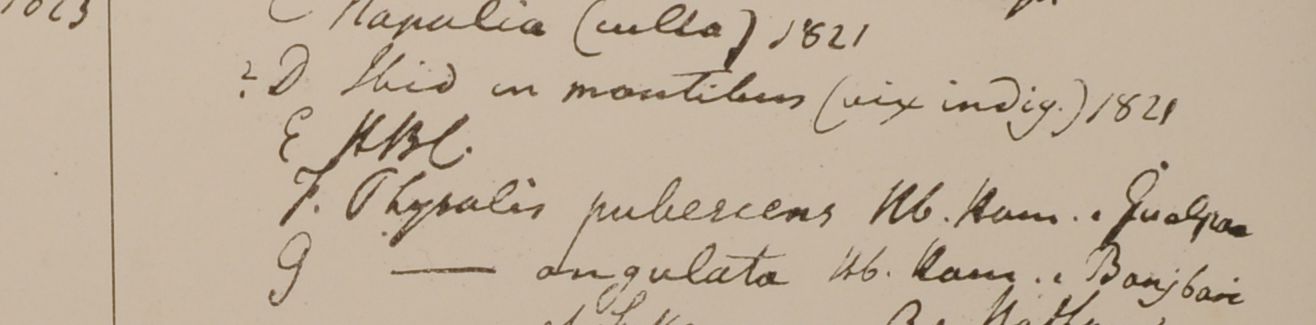 C Napalia (culta) 1821
? D Ibid in montibus (vix indig.) 1821
E HBC.
F. Physalis pubescens Hb. Ham. . Gualpara
G —— angulata Hb. Ham. . Bongbari